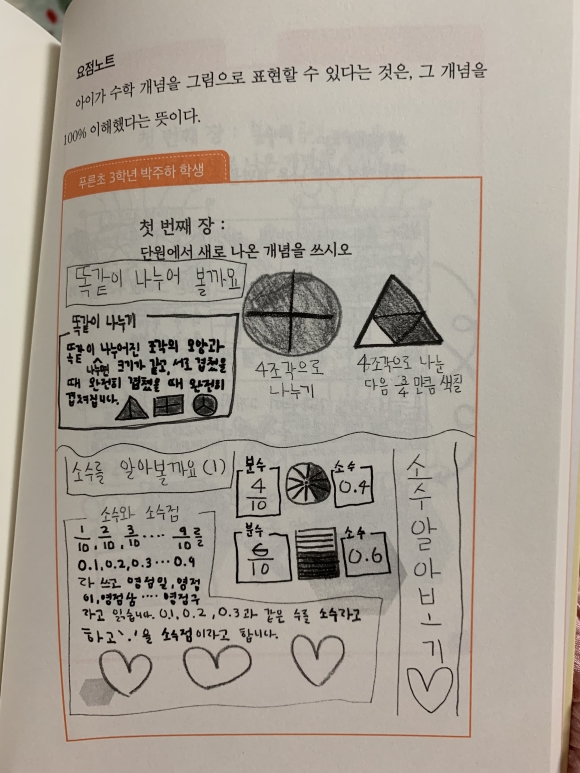 요점노트
아이가 수학 개념을 그림으로 표현할 수 있다는 것은, 그 개념을
100% 이해했다는 뜻이다.
푸른초 3학년 박주하 학생
첫 번째 장 :
단원에서 새로 나온 개념을 쓰시오
똑같이 나누어 볼까요
똑같이 나누기
똑같이 나누어진 조각의 모양과
나누면 크기가 같고, 서로 겹쳤을
때 완전히 겹쳤을 때 완전히
겹쳐집니다.
4조각으로
나누기
4조각으로 나눈
다음 3/4 만큼 색칠
소수를 알아볼까요 (1)
분수
4/10
소수
0.4
분수
6/10
소수
0.6
소수와 소수점
1/10, 2/10, 3/10 ···· 9/10를
0.1, 0.2, 0.3 ··· 0.9
라 쓰고 영점일, 영점
이, 영점삼 ···· 영점구
라고 읽습니다. 0.1, 0.2, 0.3과 같은 수를 소수라고
하고 '.'을 소수점이라고 합니다.
소수알아보기